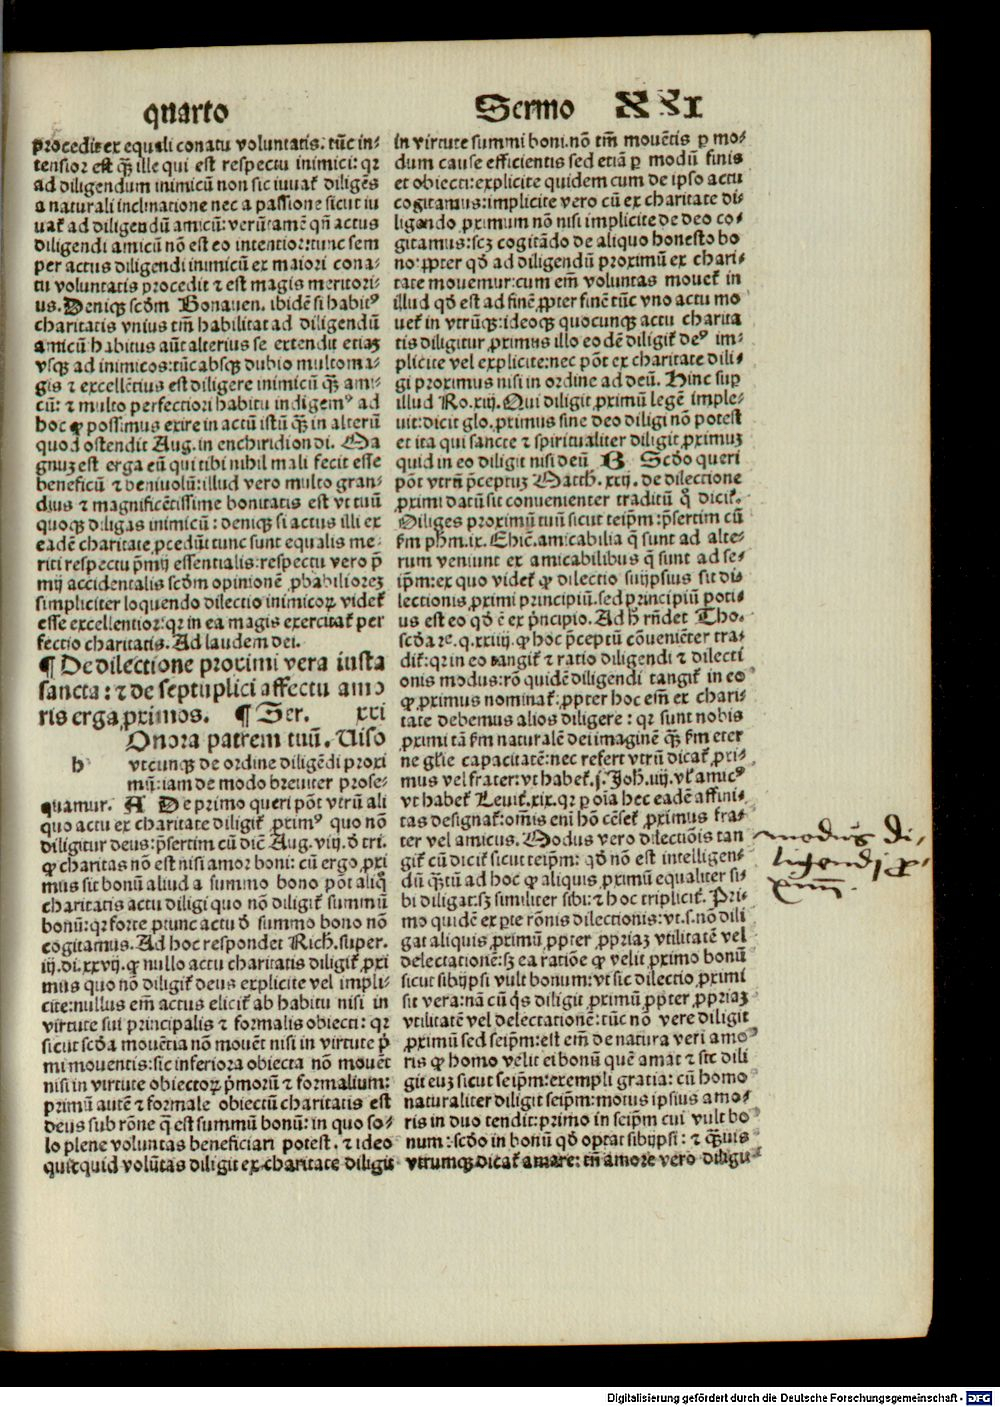 quarto
Sermo XXI
procedit ex equali conatu voluntatis: tūc in-
tensior est q̄ꝫ ille qui est respectu inimici: qr
ad diligendum inimicū non sic iuuať diligēs
a naturali inclinatione nec a passione sicut iu
uať ad diligendū amicū: verūtamē qñ actus
diligendi amicū nō est eo intentior: tunc sem
per actus diligendi inimicū ex maiori cona-
tu voluntatis procedit ⁊ est magis meritori-
us. Deniqꝫ scōm Bonauen. ibidē si habitꝰ
charitatis vnius tm̄ habilitat ad diligendū
amicū habitus aūt alterius se extendit etiaꝫ
vsqꝫ ad inimicos: tūc absqꝫ dubio multoma-
gis ⁊ excellētius est diligere inimicū q̄ꝫ ami-
cū: ⁊ multo perfectiori habitu indigemꝰ ad
hoc ꝙ possimus exire in actū istū q̄ꝫ in alterū
quod ostendit Aug. in enchiridion di. Ma
gnuꝫ est erga eū qui tibi nihil mali fecit esse
beneficū ⁊ beniuolū: illud vero multo gran-
dius ⁊ magnificētissime bonitatis est vt tuū
quoqꝫ diligas inimicū: deniqꝫ si actus illi ex
eadē charitate ꝓcedūt tunc sunt equalis me-
riti respectu p̄mij essentialis: respectu vero p̄
mij accidentalis scōm opinionē ꝓbabilioreꝫ
simpliciter loquendo dilectio inimicoꝝ videť
esse excellentior: qr in ea magis exercitať per
fectio charitatis. Ad laudem dei.
¶ De dilectione proximi vera iusta
sancta: ⁊ de septuplici affectu amo
ris erga ꝓximos. ¶ Ser. xxi
h Onora patrem tuū. Uiso
vtcunqꝫ de ordine diligēdi proxi
mū: iam de modo breuiter prose-
quamur. A De primo queri pōt vtrū ali
quo actu ex charitate diligiť ꝓximꝰ quo nō
diligitur deus: p̄sertim cū dič Aug. viij. ō tri.
ꝙ charitas nō est nisi amor boni: cū ergo ꝓxi
mus sit bonū aliud a summo bono pōt aliq̄
charitatis actu diligi quo nō diligiť summū
bonū: qr forte ꝓtunc actu ō summo bono nō
cogitamus. Ad hoc respondet Rich. super.
iij. di. xxvij. ꝙ nullo actu charitatis diligiť ꝓxi
mus quo nō diligiť deus explicite vel impli-
cite: nullus em̄ actus eliciť ab habitu nisi in
virtute sui principalis ⁊ formalis obiecti: qr
sicut scōa mouētia nō mouēt nisi in virtute p̄
mi mouentis: sic inferiora obiecta nō mouēt
nisi in virtute obiectoꝝ p̄morū ⁊ formalium:
primū autē ⁊ formale obiectū charitatis est
deus sub rōne q̄ est summū bonū: in quo so-
lo plene voluntas beneficiari potest. ⁊ ideo
quicquid volūtas diligit ex charitate diligit
in virtute summi boni. nō tm̄ mouētis ꝑ mo-
dum cause efficientis sed etiā ꝑ modū finis
et obiecti: explicite quidem cum de ipso actu
cogitamus: implicite vero cū ex charitate di-
ligendo ꝓximum non nisi implicite de deo co-
gitamus: scꝫ cogitādo de aliquo honesto bo
no: ꝓpter qō ad diligendū proximū ex chari-
tate mouemur: cum em̄ voluntas moueť in
illud qō est ad finē ꝓpter finē tūc vno actu mo
ueť in vtrūqꝫ: ideoqꝫ quocunqꝫ actu charita
tis diligitur ꝓximus illo eodē diligiť deꝰ im-
plicite vel explicite: nec pōt ex charitate dili-
gi proximus nisi in ordine ad deū. Hinc suꝑ
illud Ro. xiij. Qui diligit ꝓximū legē imple-
uit: dicit glo. ꝓximus sine deo diligi nō potest
et ita qui sancte ⁊ spiritualiter diligit ꝓximuꝫ
quid in eo diligit nisi deū B Scōo queri
pōt vtrū p̄ceptuꝫ Matth. xxij. de dilectione
ꝓximi datū sit conuenienter traditū q̄ diciť.
Diliges proximū tuū sicut teip̄m: p̄sertim cū
ẜm ph̄m. ix. Ethic. amicabilia q̄ sunt ad alte-
rum veniunt ex amicabilibus q̄ sunt ad se-
ip̄m: ex quo videť ꝙ dilectio suijpsius sit di-
lectionis ꝓximi principiū. sed principiū poti-
us est eo qō ē ex p̄ncipio. Ad h̄ rn̄det Tho.
scōa ẜe. q. xxiiij. ꝙ hoc p̄ceptū cōueniēter tra-
diť: qr in eo tangiť ⁊ ratio diligendi ⁊ dilecti
onis modus: rō quidē diligendi tangiť in eo
ꝙ ꝓximus nominať. ꝓpter hoc em̄ ex chari-
tate debemus alios diligere: qr sunt nobis
ꝓximi tā ẜm naturalē dei imaginē q̄ꝫ ẜm eter
ne gl̄ie capacitatē: nec refert vtrū dicať ꝓxi-
mus vel frater: vt habeť. j. Joh. iiij. vľ amicꝰ
vt habeť Leuiť. xix. qr ꝑ oīa hec eadē affini-
tas designať: om̄is eni hō cēseť ꝓximus fra-
ter vel amicus. Modus vero dilectiōis tan
giť cū diciť sicut teip̄m: qō nō est intelligen-
dū q̄ꝫtū ad hoc ꝙ aliquis ꝓximū equaliter si-
bi diligat: sꝫ similiter sibi: ⁊ hoc tripliciť. Pri-
mo quidē ex ꝑte rōnis dilectionis: vt. s. nō dili
gat aliquis ꝓximū ꝓpter ꝓpriaꝫ vtilitatē vel
delectationē: sꝫ ea ratiōe ꝙ velit ꝓximo bonū
sicut sibijpsi vult bonum: vt sic dilectio ꝓximi
sit vera: nā cū q̄s diligit ꝓximū ꝓpter ꝓpriaꝫ
vtilitatē vel delectationē: tūc nō vere diligit
ꝓximū sed seip̄m: est em̄ de natura veri amo-
ris ꝙ homo velit ei bonū quē amat ⁊ sic dili
git euꝫ sicut seip̄m: exempli gratia: cū homo
naturaliter diligit seip̄m: motus ipsius amo-
ris in duo tendit: primo in seip̄m cui vult bo
num: scōo in bonū qō optat sibijpsi: ⁊ q̄ꝫuis
vtrumqꝫ dicať amare: tn̄ amore vero diligit
modus di-
ligendi ꝓ-
ximū.
Digitalisierung gefördert durch die Deutsche Forschungsgemeinschaft - DFG